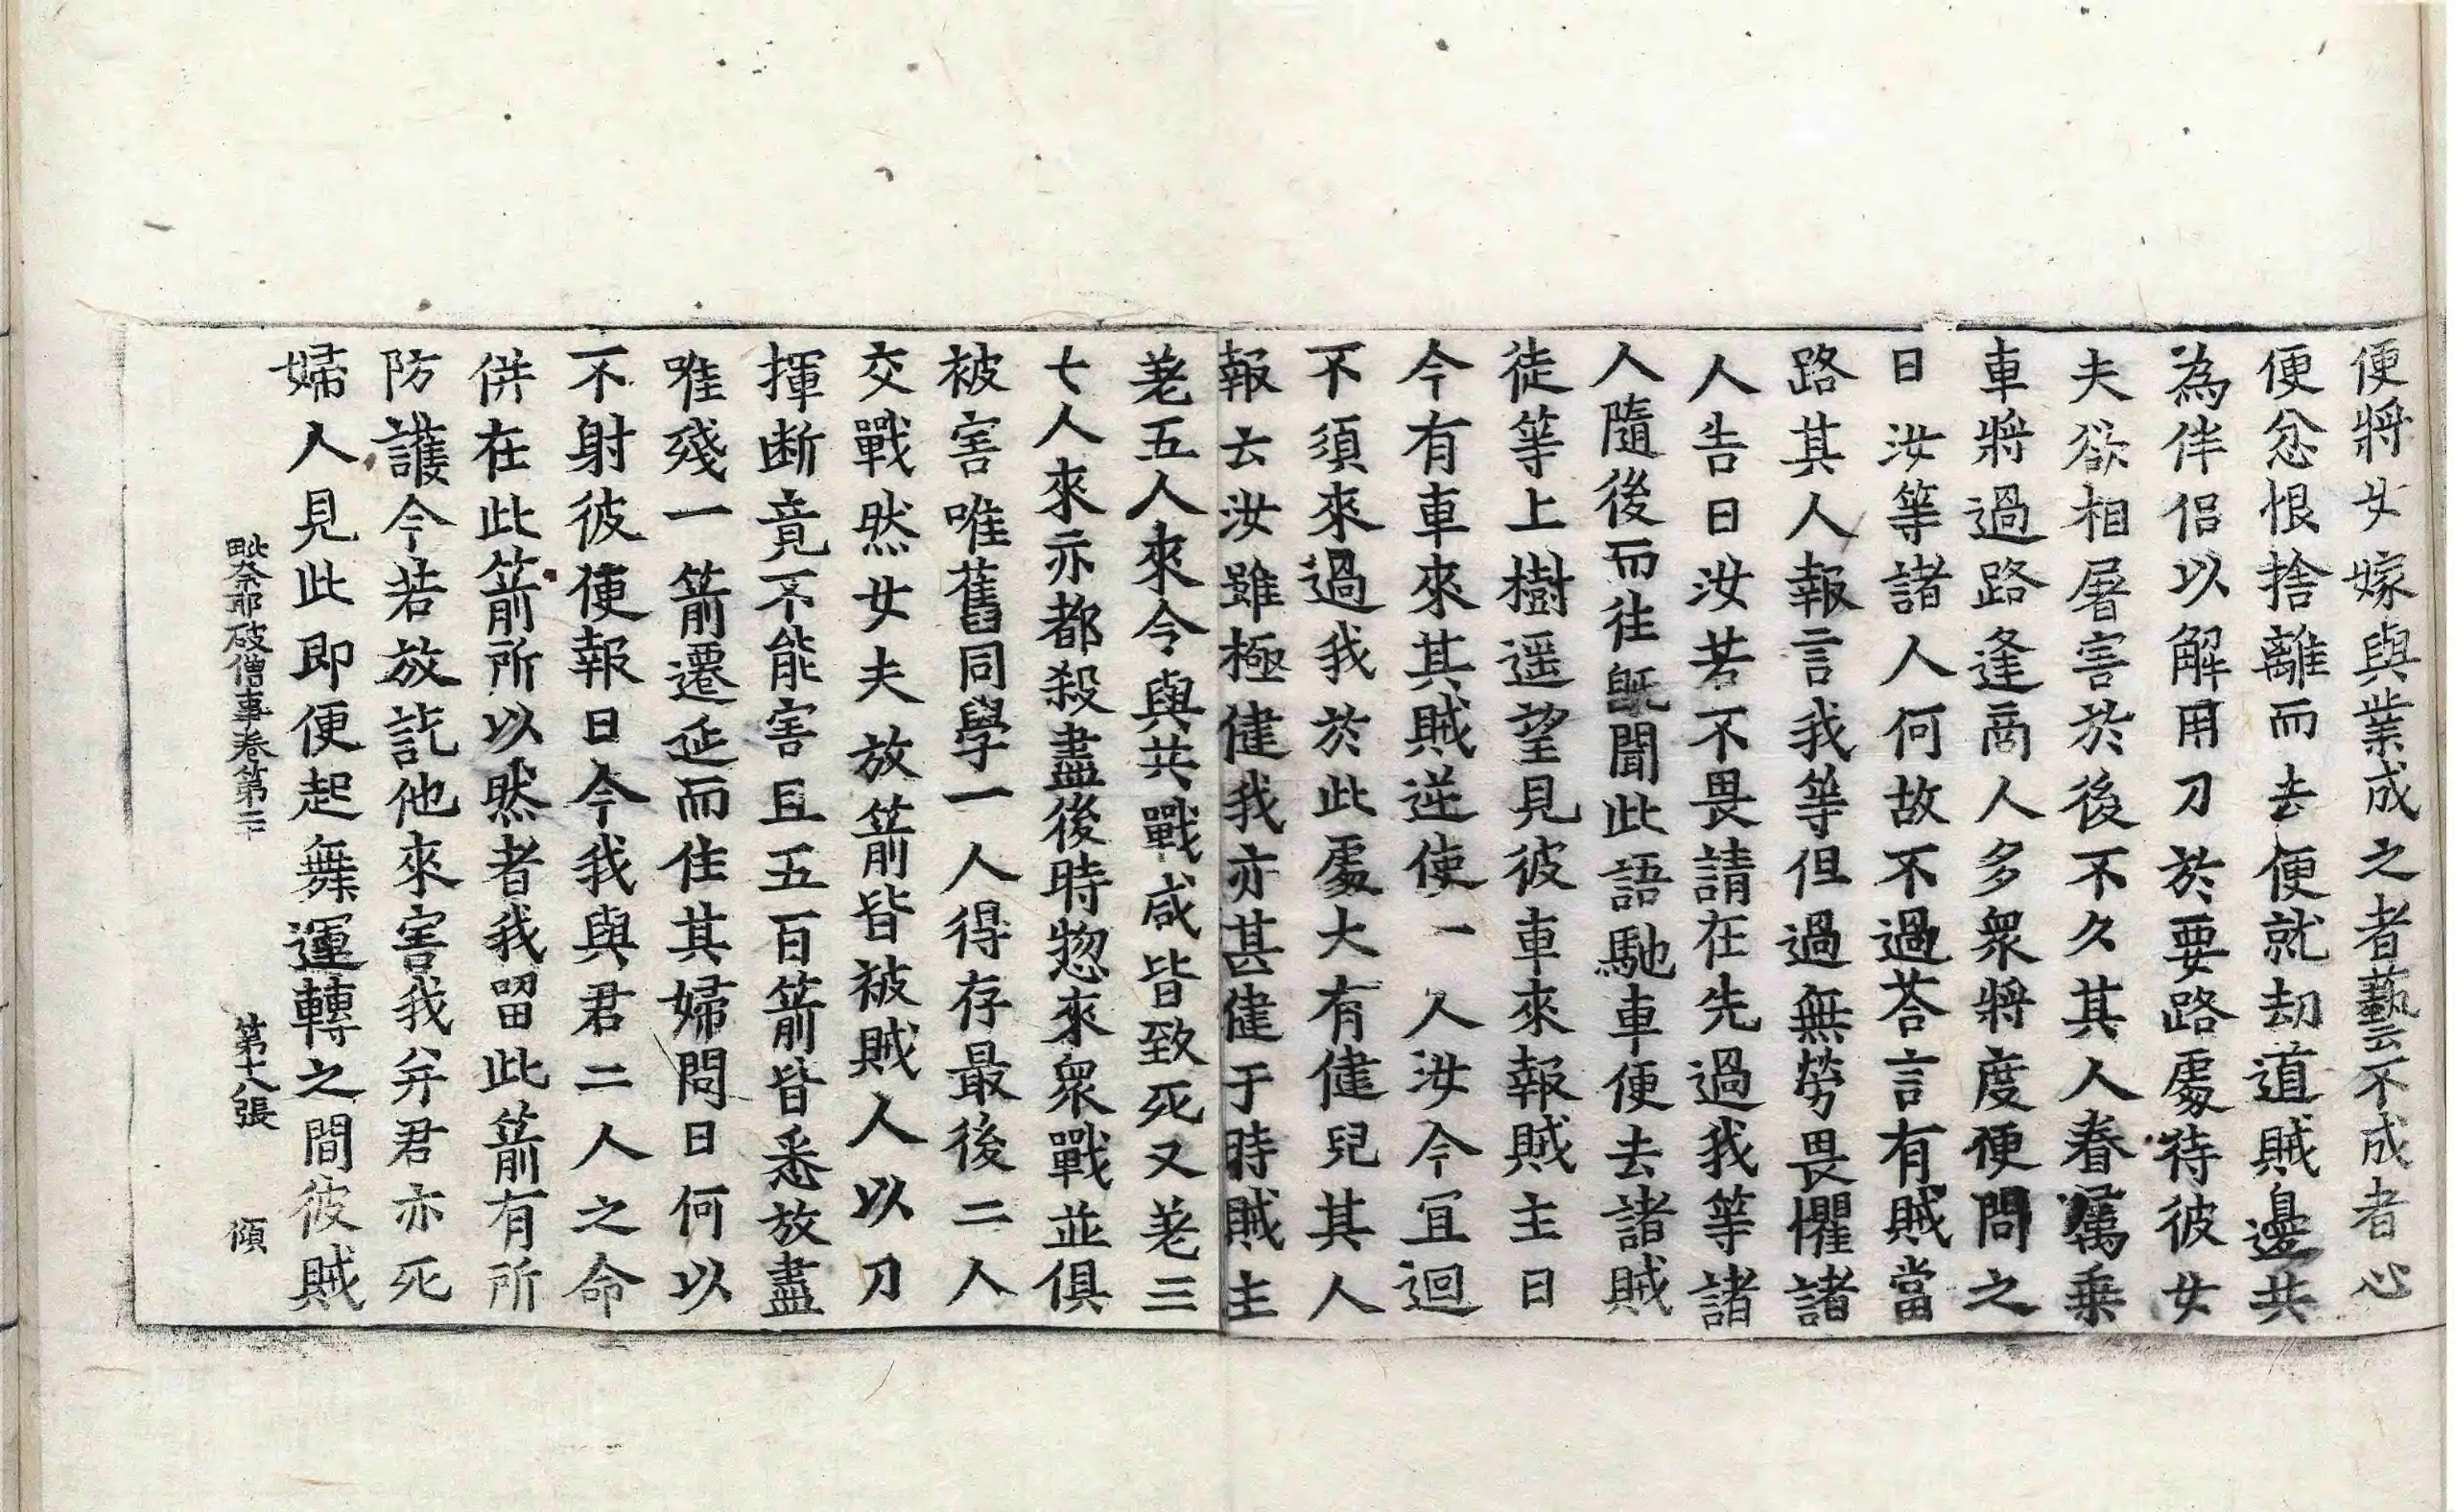 便將女嫁與業成之者藝不成者心
便忿恨捨離而去便就劫道賊邊共
為伴侶以解用刀於要路處待彼女
夫欲相屠害於後不久其人眷屬乗
車將過路逢商人多衆將度便問之
日汝等諸人何故不過荅言有賊當
路其人報言我等但過無勞畏懼諸
人告日汝若不畏請在先過我等諸
人隨後而往旣聞此語馳車便去諸賊
徒等上樹遥望見彼車來報賊主日
今有車來其賊逆使一人汝今冝迴
不須來過我於此處大有健兒其人
報云汝雖極健我亦甚健于時賊主
差五人來令與共戰咸皆致死又差三
七人來亦都殺盡後時惣來衆戰並俱
被害唯舊同學一人得存最後二人
交戰然女夫放箭皆被賊人以刀
揮断竟不能害且五百箭皆悉放盡
唯殘一箭遷延而住其婦問日何以
不射彼便報日今我與君二人之命
併在此箭所以然者我留此箭有所
防護今若放訖他來害我并君亦死
婦人見此即便起舞運轉之間彼賊
毗奈耶破僧事卷第二十 第十八張 傾